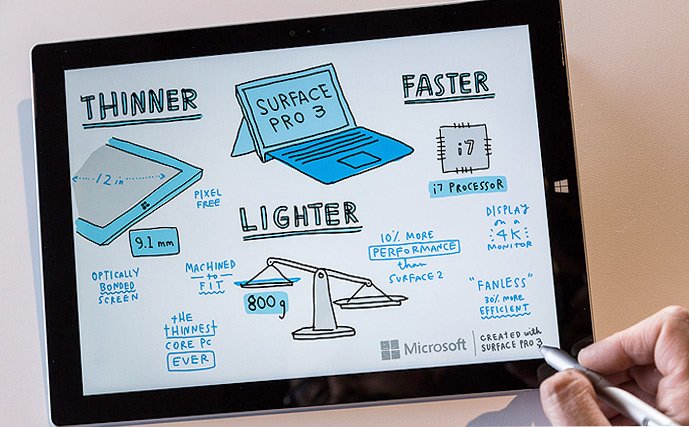 THINNER
SURFACE
PRO 3
FASTER
12 in
PIXEL
FREE
9.1 mm
i7
i7 PROCESSOR
LIGHTER
OPTICALLY
BONDED
SCREEN
MACHINED
to
FIT
800g
10% MORE
PERFORMANCE
than
SURFACE 2
DISPLAY
on a
4K
MONITOR
"FANLESS"
30% MORE
EFFICIENT
the
THINNEST
CORE PC
EVER
Microsoft
CREATED with
SURFACE PRO 3